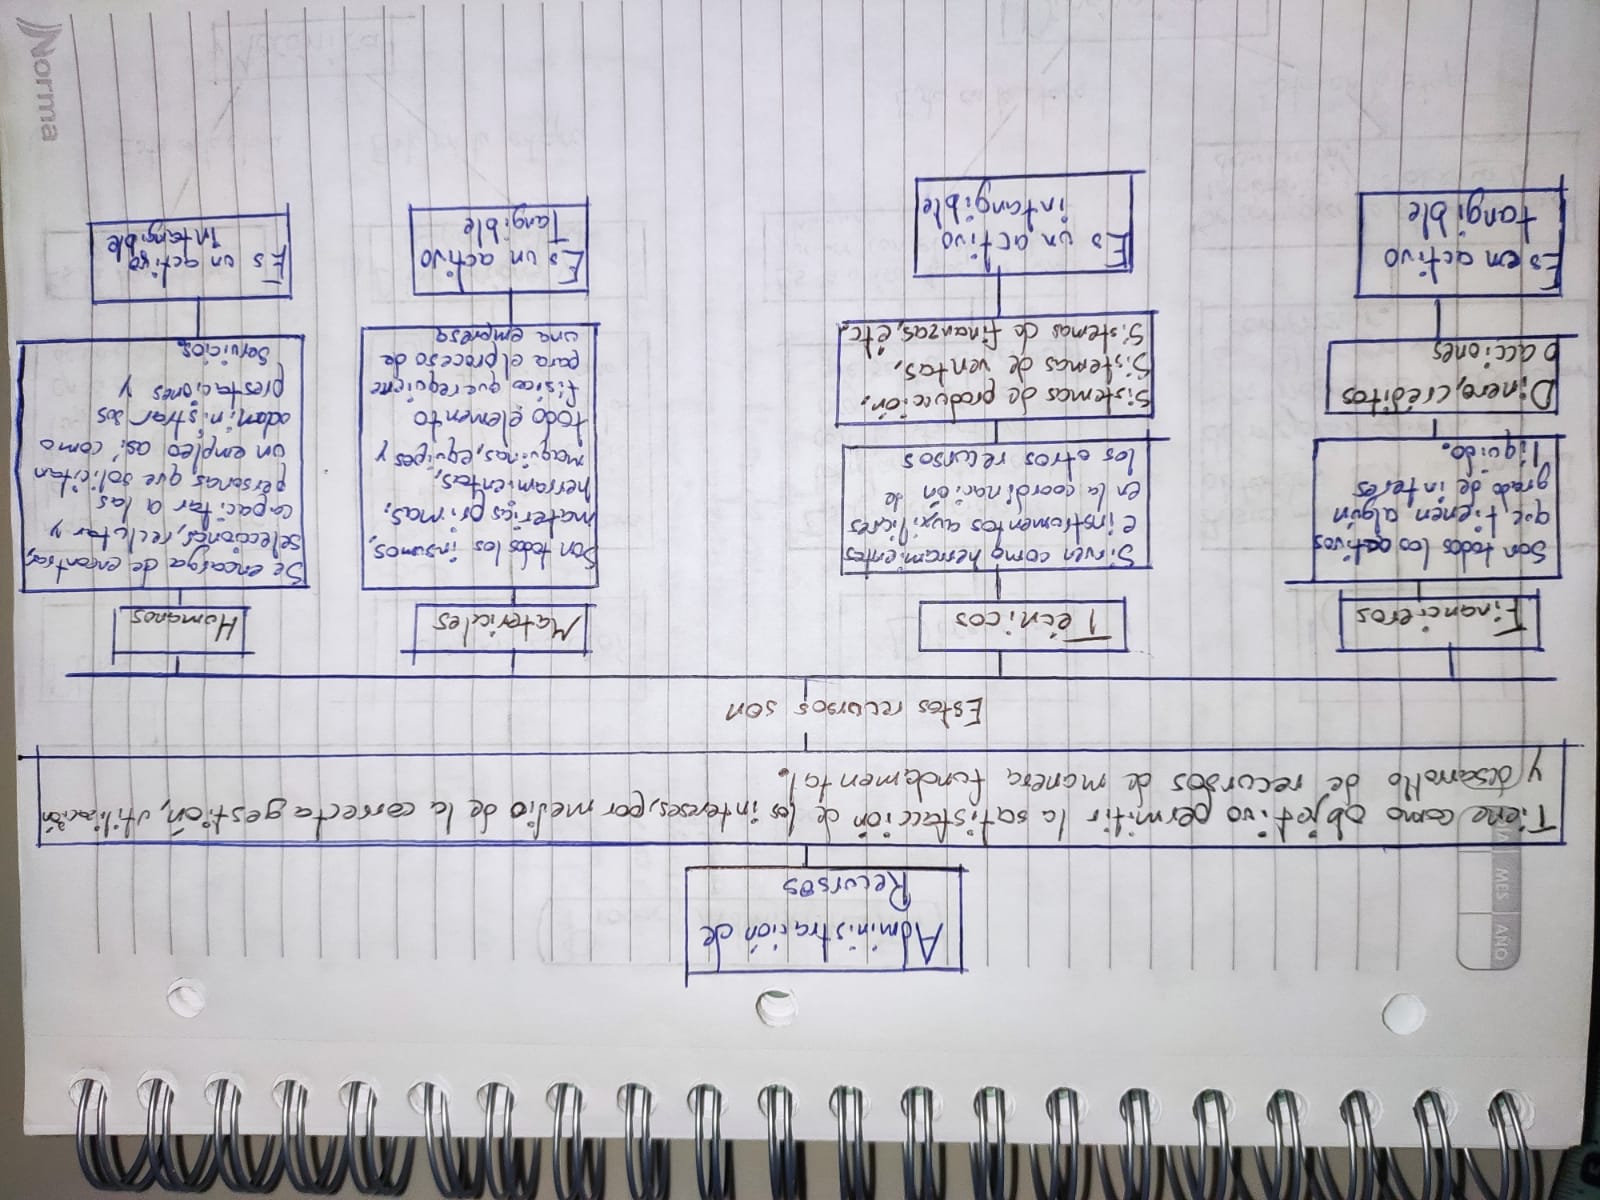 Administración de
Recursos
Tiene como objetivo permitir la satisfacción de los intereses, por medio de la correcta gestión, utilización
y desarrollo de recursos de manera fundamental.
Estos recursos son
Financieros
Son todos los activos
que tienen algún
grado de interes
liquido.
Dinero, créditos
o acciones
Es em activo
tangible
Técnicos
Sirven como herramientas
e instrumentos auxiliares
en la coordinación de
los otros recursos
Sistemas de producción,
Sistemas de ventas,
Sistemas de finanzas, etc.
Es un activo
intangible
Materiales
Son todos los insumos,
materias primas,
herramientas,
maquinas, equipos y
todo elemento
fisico que requiere
para el proceso de
una empresa
Es un activo
Tangible
Humanos
Se encarga de encontrar,
seleccionar, reclutar y
capacitar a las
personas que solicitan
un empleo asi como
adaministrar sus
prestaciones y
servicios.
Es un activo
Intangible
MES
ANO
Norma